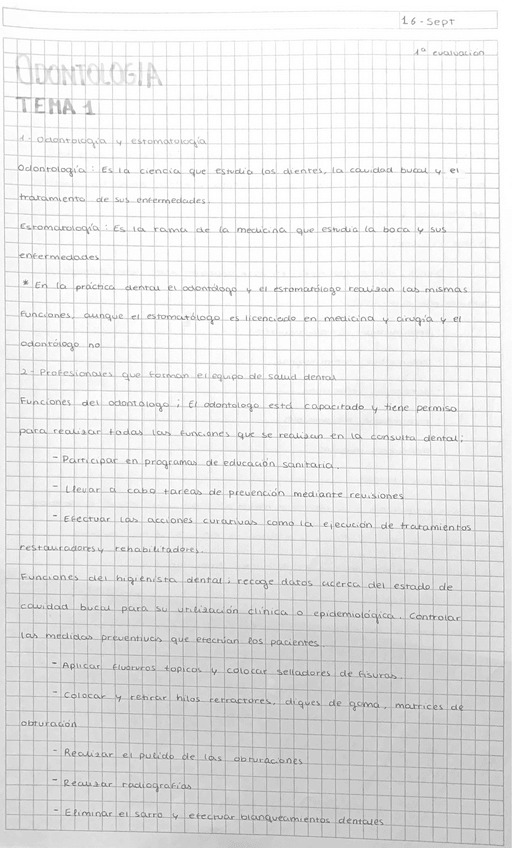 16-Sept
1º evaluacion
ODONTOLOGIA
TEMA 1
1- Odontologia y estomatologia
Odontologia: Es la ciencia que estudia los dientes, la cavidad bucal y el
tratamiento de sus enfermedades
Estomatologia: Es la rama de la medicina que estudia la boca y sus
enfermedades
* En la práctica dental el odontólogo y el estomatólogo realizan las mismas
funciones, aunque el estomatólogo es licenciado en medicina y cirugía y el
odontólogo no
2- Profesionales que forman el equipo de salud dental
Funciones del odontologo; El odontologo está capacitado y tiene permiso
para realizar todas las funciones que se realizan en la consulta dental;
- Participar en programas de educación sanitaria.
- Llevar a cabo tareas de prevención mediante revisiones
- Efectuar las acciones curativas como la ejecución de tratamientos
restauradores y rehabilitadores.
Funciones del higienista dental; recoge datos acerca del estado de
cavidad bucal para su utilización clínica o epidemiológica. Controlar
las medidas preventivas que efectúan los pacientes.
- Aplicar fluoruros topicos y colocar selladores de fisuras.
- Colocar y retirar hilos retractores, diques de goma, matrices de
obturación
- Realizar el pulido de las obturaciones
- Realizar radiografías
- Eliminar el sarro y efectuar blanqueamientos dentales